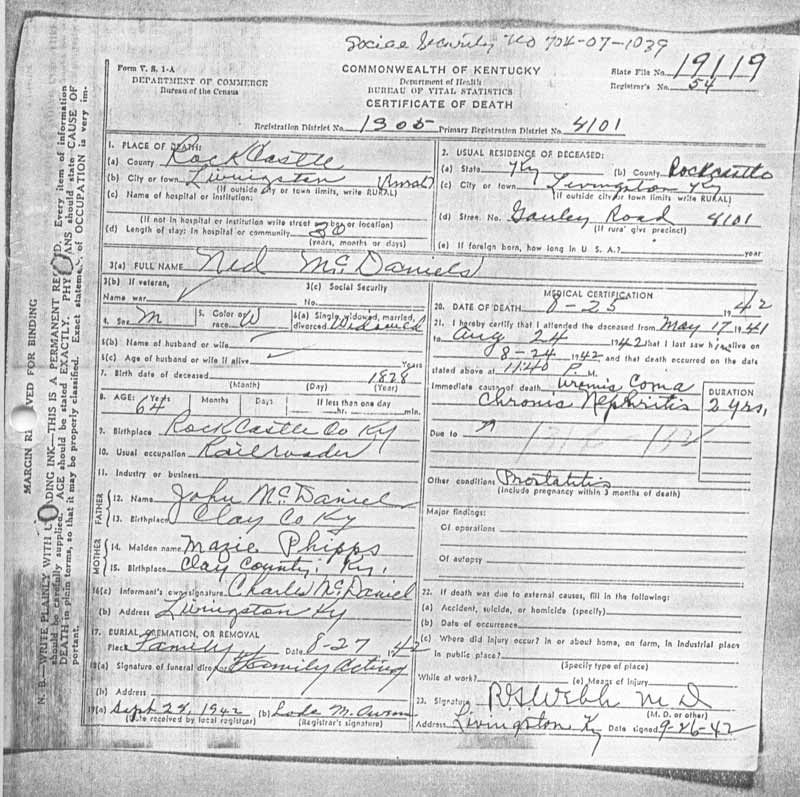 Social Security No 704-07-1039
Form V. S. 1-A
DEPARTMENT OF COMMERCE
Bureau of the Census
COMMONWEALTH OF KENTUCKY
Department of Health
BUREAU OF VITAL STATISTICS
CERTIFICATE OF DEATH
State File No. 19119
Registrar's No. 54
Registration District No. 1305 Primary Registration District No. 4101
MARGIN RE VED FOR BINDING
N. B.—WRITE PLAINLY WITH ADING INK—THIS IS A PERMANENT RE D. Every item of information
should be carefully supplied. AGE should be stated EXACTLY. PHY ANS should state CAUSE OF
DEATH in plain terms, so that it may be properly classified. Exact statement of OCCUPATION is very im-
portant.
1. PLACE OF DEATH:
(a) County RockCastle
(b) City or town Livingston (Rural)
(If outside city or town limits, write RURAL)
(c) Name of hospital or institution:
(If not in hospital or institution write street number or location)
(d) Length of stay: In hospital or community 30
(years, months or days)
2. USUAL RESIDENCE OF DECEASED:
(a) State Ky (b) County Rockcastle
(c) City or town Livingston Ky
(If outside city or town limits, write RURAL)
(d) Street No. Ganley Road 4101
(If rural give precinct)
(e) If foreign born, how long in U. S. A.? year
3(a) FULL NAME Ned McDaniels
3(b) If veteran,
Name war
3(c) Social Security
No.
4. Sex M 5. Color or race W 6(a) Single, widowed, married, divorced Widowed
6(b) Name of husband or wife
6(c) Age of husband or wife if alive Years
7. Birth date of deceased 1878
(Month) (Day) (Year)
8. AGE: Years Months Days If less than one day
64 hr. min.
9. Birthplace RockCastle Co Ky
10. Usual occupation Railroader
11. Industry or business
FATHER
12. Name John McDaniel
13. Birthplace Clay Co Ky
MOTHER
14. Maiden name Mazie Phipps
15. Birthplace Clay County, Ky.
16(c) Informant's own signature Charles McDaniel
(b) Address Livingston Ky
17. BURIAL, CREMATION, OR REMOVAL
Place Family Date 8-27 1942
18(a) Signature of funeral director Family Acting
(b) Address
19(a) Sept 28, 1942 (b)
(Date received by local registrar) (Registrar's signature)
MEDICAL CERTIFICATION
20. DATE OF DEATH 8-25 1942
21. I hereby certify that I attended the deceased from May 17 1941
to Aug 24 1942 that I last saw him alive on
8-24 1942 and that death occurred on the date
stated above at 11:40 P. M.
Immediate cause of death Uremic Coma
Chronic Nephritis
DURATION
2 yrs.
Due to
Other conditions Prostatitis
(Include pregnancy within 3 months of death)
Major findings:
Of operations
Of autopsy
22. If death was due to external causes, fill in the following:
(a) Accident, suicide, or homicide (specify)
(b) Date of occurrence
(c) Where did injury occur? In or about home, on farm, in industrial place
in public place?
(Specify type of place)
While at work? (e) Means of Injury
23. Signature R.G. Webb M D
(M. D. or other)
Address Livingston Ky Date signed 9-26-42